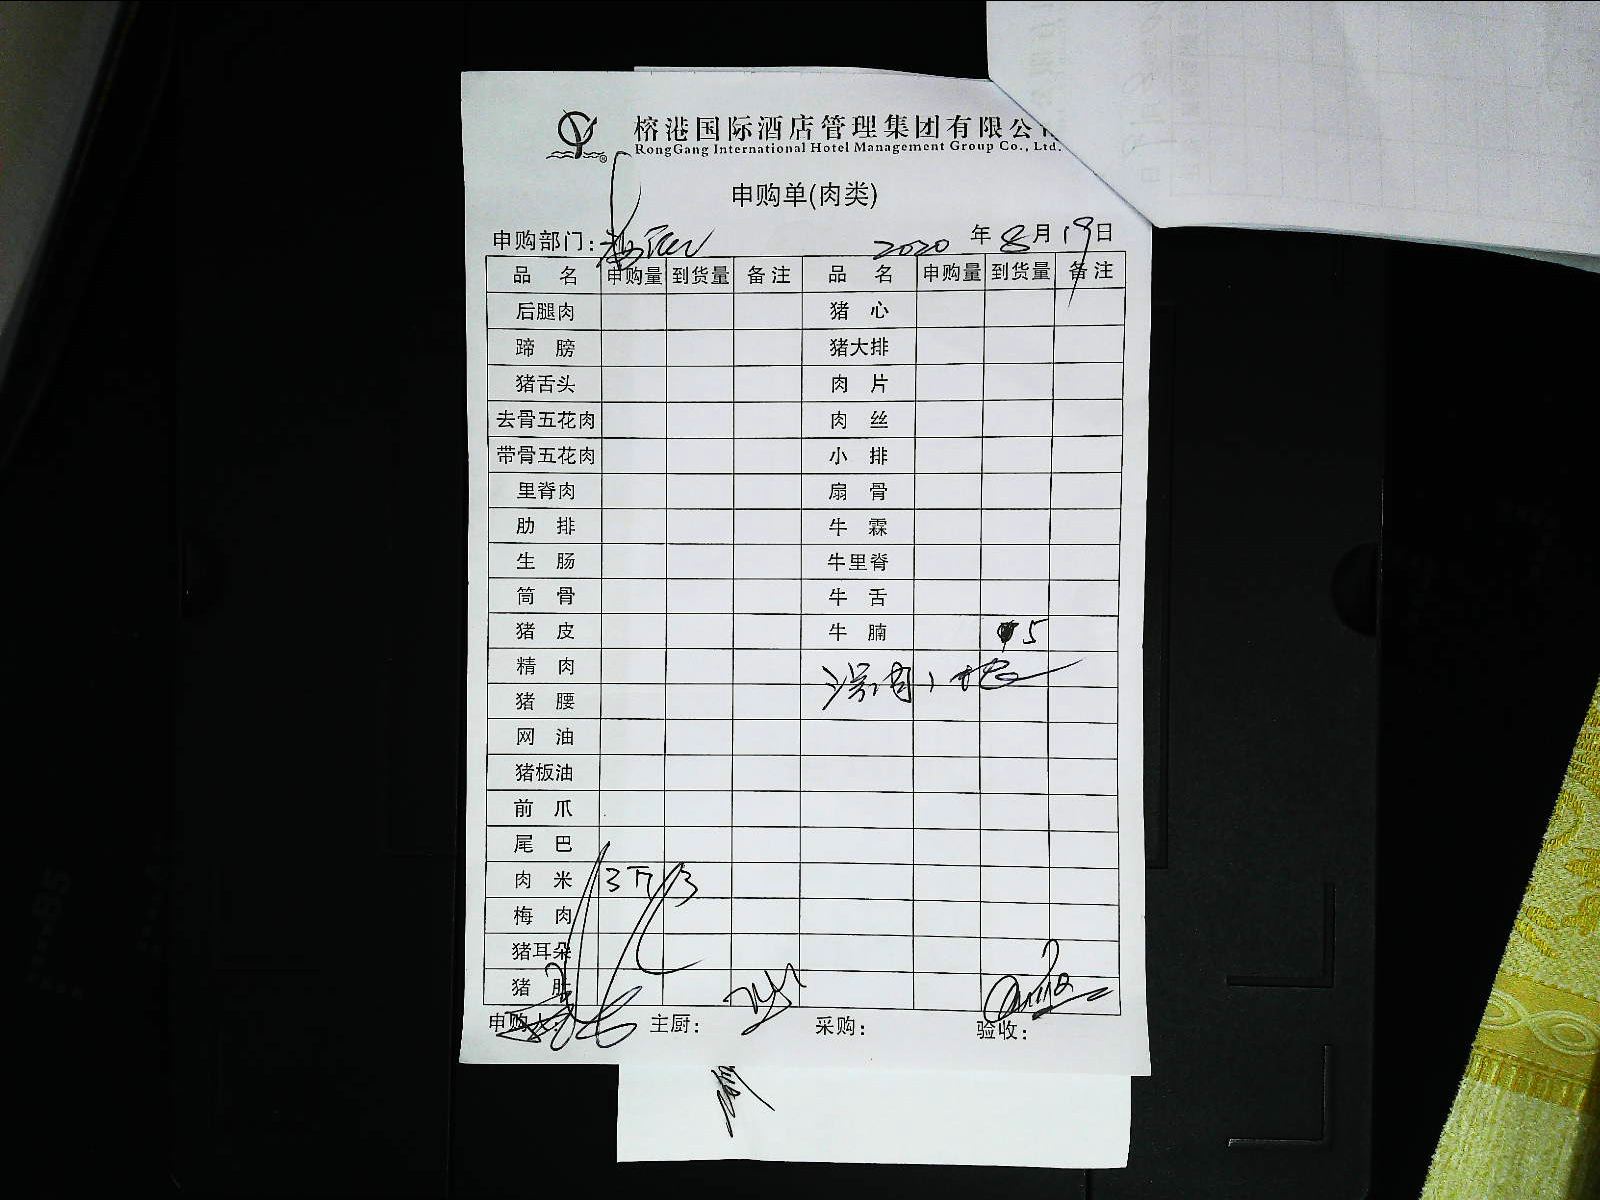 榕港国际酒店管理集团有限公
RongGang International Hotel Management Group Co., Ltd.
申购单(肉类)
申购部门: 2020 年 8 月 19 日
品 名 申购量 到货量 备注 品 名 申购量 到货量 备注
后腿肉 猪 心
蹄 膀 猪大排
猪舌头 肉 片
去骨五花肉 肉 丝
带骨五花肉 小 排
里脊肉 扇 骨
肋 排 牛 霖
生 肠 牛里脊
筒 骨 牛 舌
猪 皮 牛 腩 5
精 肉
猪 腰
网 油
猪板油
前 爪
尾 巴
肉 米 3斤 3
梅 肉
猪耳朵
猪 肚
申购人: 主厨: 采购: 验收: